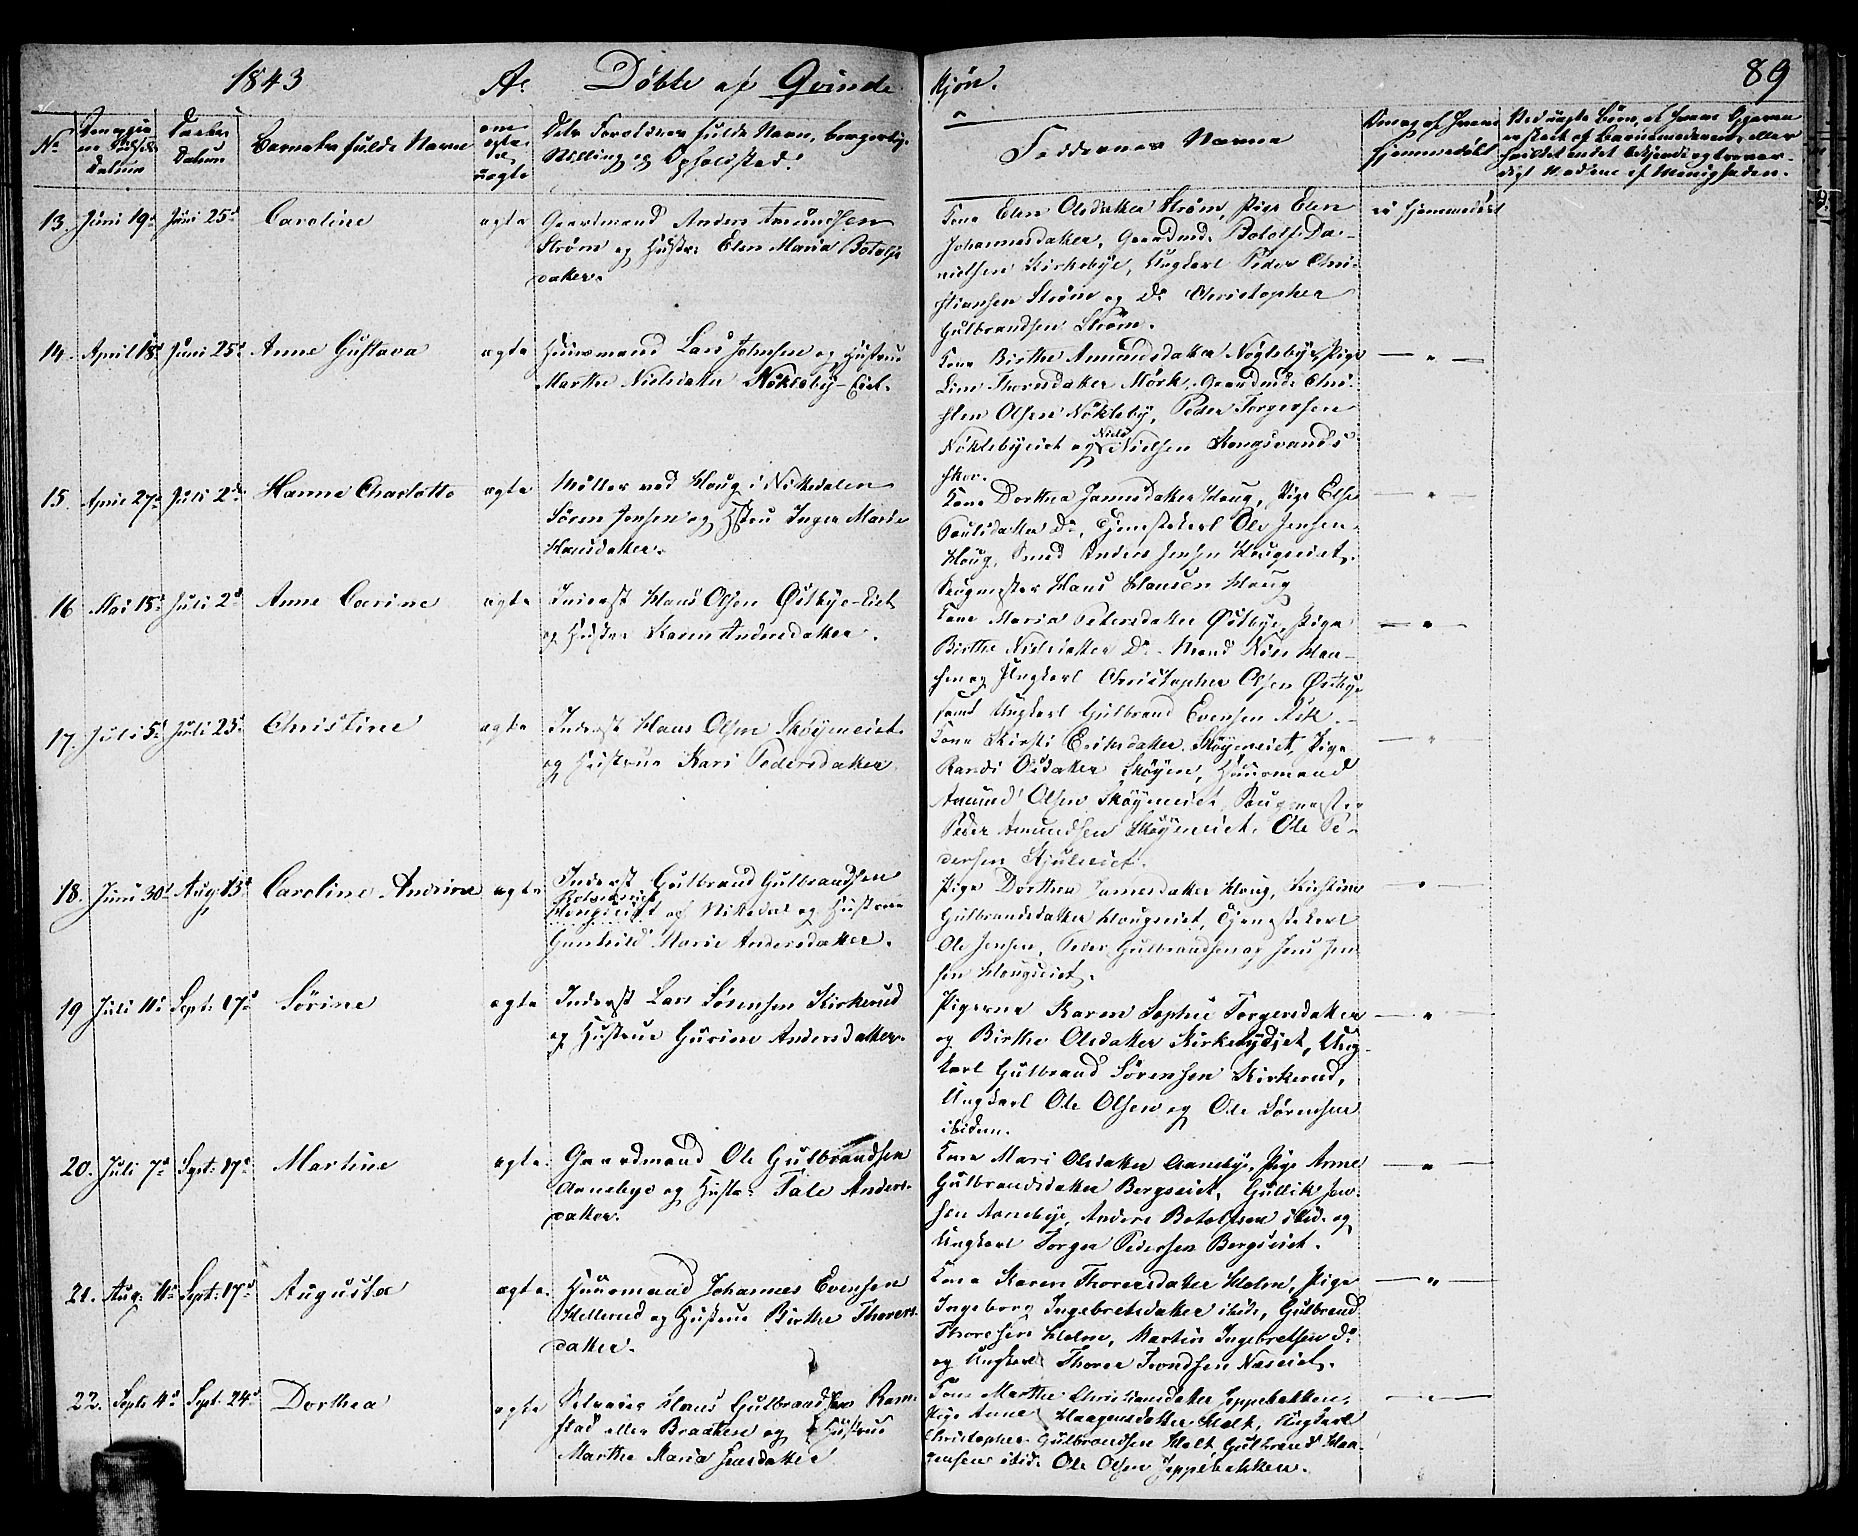 1843 A. Døbte af Qvinde-Kjøn. 89
No
Datum
Daabs Datum
Barnets fulde Navn
om ægte el. uægte
Forældrenes fulde Navn, borgerlig
Stilling og Opholdssted.
Faddernes Navne
hjemmedøbt
13. Juni 19d Juni 25d Caroline ægte Gaardmand Anders Amundsen
Strøm og Hustr. Elen Maria Botolfs
datter.
Kone Elen Olsdatter Strøm, Pige Elen
Johannesdatter, Gaardmd. Botolf Da-
nielsen Kirkebye, Ungkarl Peder Chri-
stiansen Strøm og Do Christopher
Gulbrandsen Strøm.
ei hjemmedøbt
14. April 18d Juni 25d Anne Gustava ægte Huusmand Lars Johnsen og Hustrue
Marthe Nielsdatter Nökleby-Eiet.
Kone Birthe Amundsdatter Nöglebye, Pige
Line Thorsdatter Mörk, Gaardmd. Chri-
sten Olsen Nökleby, Peder Torgersen
Nöklebyeiet og Niels Nielsen Kongsvands
skov.
— " —
15. April 27d Juli 2d Hanne Charlotte ægte Møller ved Houg i Nikedalen
Sören Jensen og Hstru Inger Marie
Hansdatter.
Kone Dorthea Jansdatter Houg, Pige Else
Poulsdatter Do, Tjenestekarl Ole Jensen
Houg, Smed Anders Jensen Hougseiet,
Saugmester Hans Hansen Houg
— " —
16 Mai 15d Juli 2d Anne Carine ægte Inderst Hans Olsen Østbye-Eiet
og Hustr. Karen Andersdatter.
Kone Maria Pedersdatter Østbye, Pige
Birthe Nielsdatter Do. Mand Niels Han-
sen og Ungkarl Christopher Olsen Østbye
samt Ungkarl Gulbrand Evensen Ask.
— " —
17. Juli 5d Juli 23d Christine ægte Inderst Hans Olsen Skøyeneiet
og Hustrue Kari Pedersdatter
Kone Kirsti Eriksdatter Skøyeneiet, Pige
Randi Olsdatter Skøyen, Huusmand
Amund Olsen Skøyeneiet, Saugmester
Peder Amundsen Skøyeneiet, Ole Pe-
dersen Skjulseiet.
— " —
18. Juni 30d Aug. 13d Caroline Andrine ægte Inderst Gulbrand Gulbrandsen
Hougseiet af Nikedal og Hustrue
Gunhild Marie Andersdatter.
Pige Dorthea Jansdatter Houg, Kirstine
Gulbrandsdatter Hougseiet, Tjenestekarl
Ole Jensen, Peder Gulbrandsen og Jens Jen
sen Hougseiet.
— " —
19 Juli 11d Sept. 17d Sörine ægte Inderst Lars Sörensen Kirkerud
og Hustrue Gurine Andersdatter.
Pigerne Karen Sophie Torgersdatter
og Birthe Olsdatter Kirkebyeiet, Ung-
karl Gulbrand Sörensen Kirkerud,
Ungkarl Ole Olsen og Ole Sörensen
ibidem.
— " —
20. Juli 7d Sept. 17d Martine ægte. Gaardmand Ole Gulbrandsen
Aanebye og Hustr. Tale Anders-
datter.
Kone Mari Olsdatter Aaneby, Pige Anne
Gulbrandsdatter Bergseiet, Gullik Jen-
sen Aanebye, Anders Botolfsen ibid. og
Ungkarl Torger Pedersen Bergseiet.
— " —
21. Aug. 11d Sept. 17d Augusta ægte. Huusmand Johannes Evensen
Kellerud og Hustrue Birthe Thorers-
datter.
Kone Karen Thorersdatter Holm, Pige
Ingeborg Ingebretsdatter ibid., Gulbrand
Thoresen Holm, Martin Ingebretsen Do
og Ungkarl Thorer Trondsen Næseiet.
— " —
22. Sept. 4d Sept. 24d Dorthea ægte Selveier Hans Gulbrandsen Ram-
stad eller Braaten og Hustrue
Marthe Maria Larsdatter
Kone Marthe Christiansdatter Jeppebakken,
Pige Anne Haagensdatter Holt, Ungkarl
Christopher Gulbrandsen Holt, Gulbrand Haa-
gensen ibid. Ole Olsen Jeppebakken.
— " —